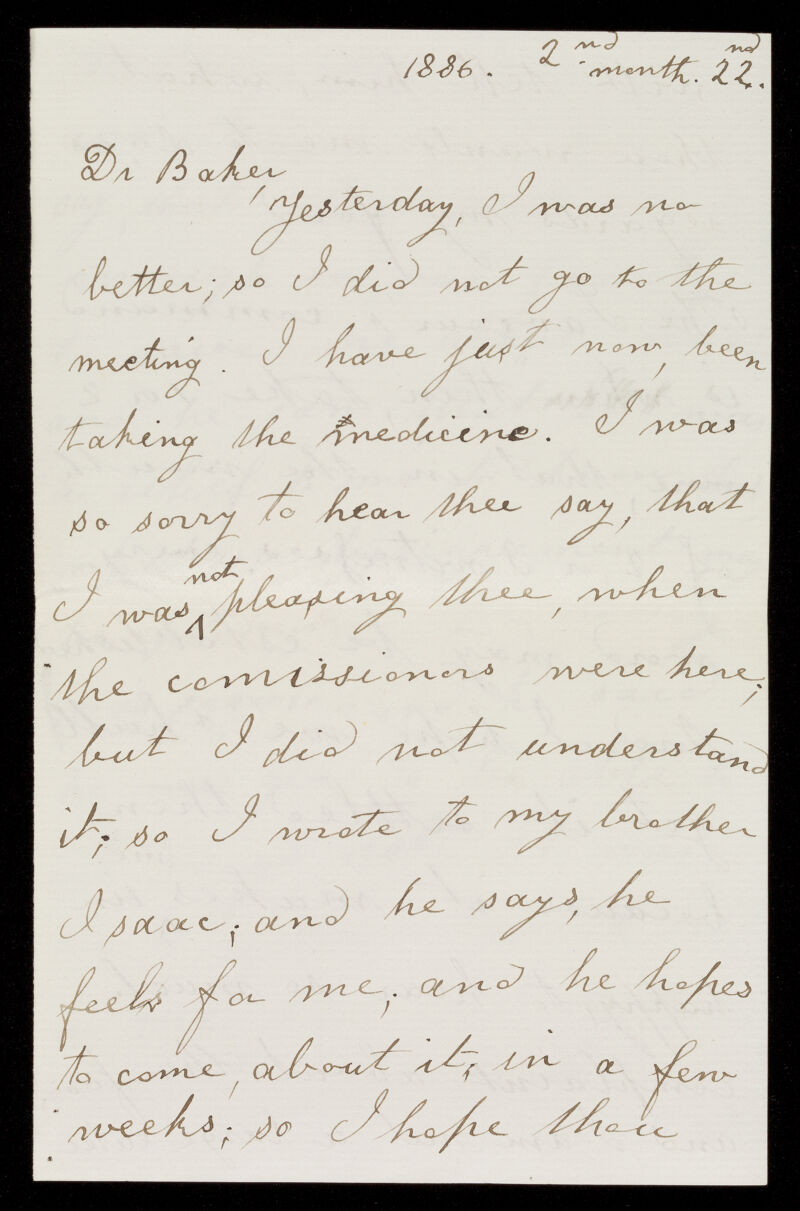 1886. 2nd month. 22nd.
Dr Baker,
Yesterday, I was no
better; so I did not go to the
meeting. I have just now, been
taking the medicine. I was
so sorry to hear thee say, that
I was not pleasing thee, when
the comissioners were here;
but I did not understand
it; so I wrote to my brother
Isaac; and he says, he
feels for me; and he hopes
to come, about it; in a few
weeks; so I hope thou